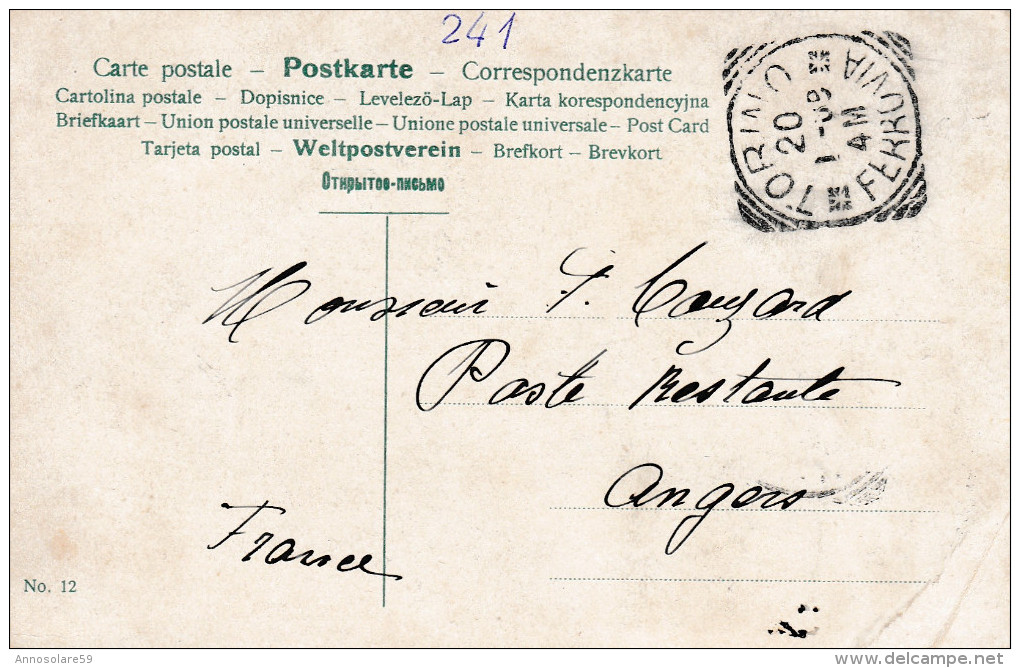 241
Carte postale – Postkarte – Correspondenzkarte
Cartolina postale – Dopisnice – Levelező-Lap – Karta korespondencyjna
Briefkaart – Union postale universelle – Unione postale universale – Post Card
Tarjeta postal – Weltpostverein – Brefkort – Brevkort
Открытое-письмо
TORINO
FERROVIA
20
4 AM
Monsieur F.
Poste Restante
Angers
France
No. 12
Annosolare59
delcampe.net